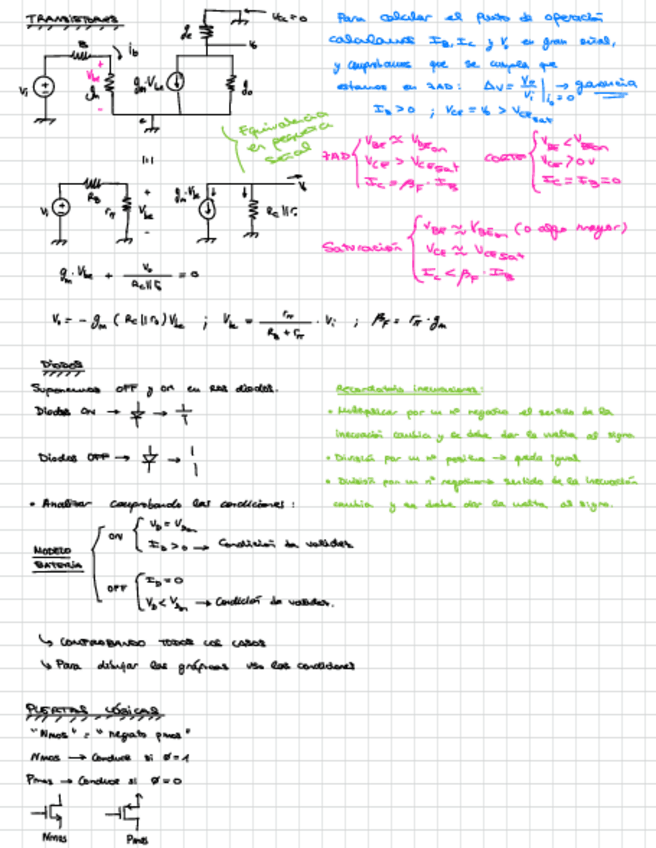 TRANSISTORES
Vcc=0
Para calcular el punto de operación
calculamos IB, Ic y Vo en gran señal,
y comprobamos que se cumple que
estamos en ZAD: Δv = Vo/Vi | → ganancia
IB > 0 ; VCE = Vo > VCEsat
B
ib
Vi
Vbe
gm·Vbe
Equivalencia
en pequeña
señal
ZAD
VBE ≈ VBEon
VCE > VCEsat
Ic = βF · IB
CORTE
VBE < VBEon
VCE > 0V
Ic = IB = 0
Vi
RB
rπ
Vbe
gm·Vbe
Rc||ro
Saturación
VBE ≈ VBEon (o algo mayor)
VCE ≈ VCEsat
Ic < βF · IB
gm·Vbe + Vo/Rc||ro = 0
Vo = -gm (Rc||ro) Vbe ; Vbe = rπ/RB + rπ · Vi ; βF = rπ · gm
DIODOS
Suponemos OFF y ON en los diodos.
Diodos ON →
Diodos OFF →
Recordatorio inecuaciones:
• Multiplicar por un nº negativo el sentido de la
inecuación cambia y se debe dar la vuelta al signo
• División por un nº positivo → queda igual
• División por un nº negativo sentido de la inecuación
cambia y se debe dar la vuelta al signo.
• Analizar comprobando las condiciones:
MODELO
BATERÍA
ON
ID > 0 → Condición de validez
OFF
ID = 0
→ Condición de validez.
↳ COMPROBANDO TODOS LOS CASOS
↳ Para dibujar las gráficas uso las condiciones
PUERTAS LÓGICAS
"Nmos" = "negato pmos"
Nmos → Conduce si Ø=1
Pmos → Conduce si Ø=0
Nmos
Pmos